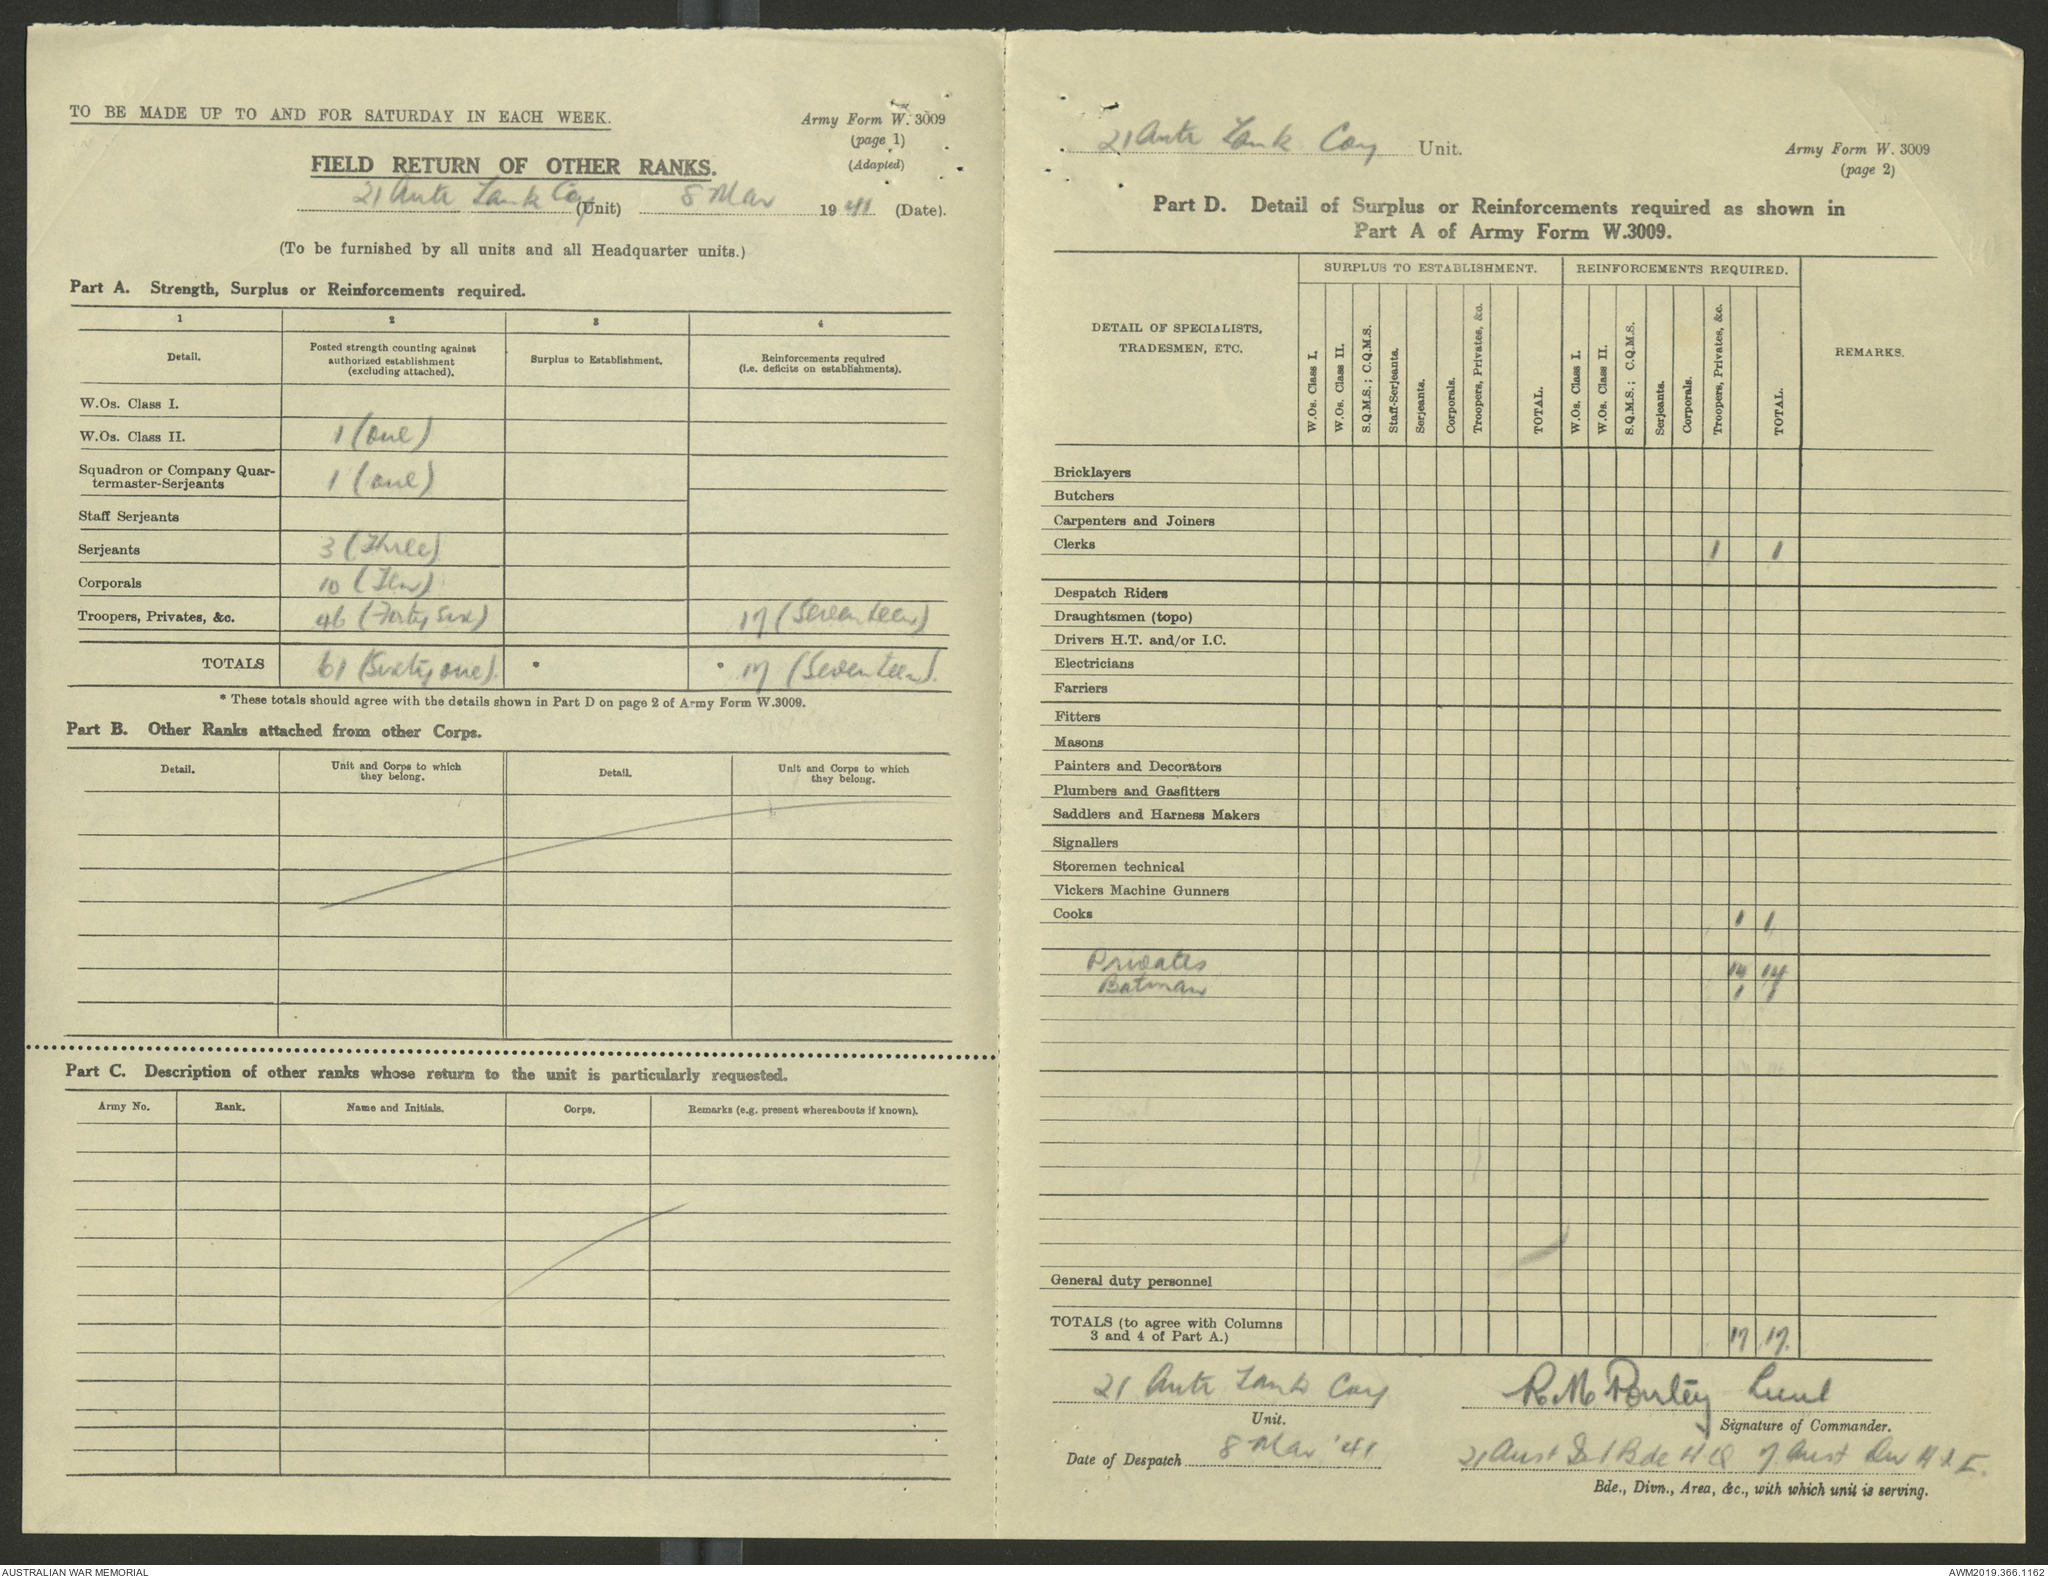 TO BE MADE UP TO AND FOR SATURDAY IN EACH WEEK.
Army Form W. 3009
(page 1)
(Adapted)
FIELD RETURN OF OTHER RANKS.
21 Anti Tank Coy (Unit) 8 Mar 1941 (Date).
(To be furnished by all units and all Headquarter units.)
Part A. Strength, Surplus or Reinforcements required.
1 2 3 4
Detail. Posted strength counting against authorized establishment (excluding attached). Surplus to Establishment. Reinforcements required (i.e. deficits on establishments).
W.Os. Class I.
W.Os. Class II. 1 (one)
Squadron or Company Quar-
termaster-Serjeants 1 (one)
Staff Serjeants
Serjeants 3 (Three)
Corporals 10 (Ten)
Troopers, Privates, &c. 46 (Forty Six) 17 (Seventeen)
TOTALS 61 (Sixty one). * * 17 (Seventeen).
* These totals should agree with the details shown in Part D on page 2 of Army Form W.3009.
Part B. Other Ranks attached from other Corps.
Detail. Unit and Corps to which they belong. Detail. Unit and Corps to which they belong.
Part C. Description of other ranks whose return to the unit is particularly requested.
Army No. Rank. Name and Initials. Corps. Remarks (e.g. present whereabouts if known).
21 Anti Tank Coy Unit.
Army Form W. 3009
(page 2)
Part D. Detail of Surplus or Reinforcements required as shown in
Part A of Army Form W.3009.
DETAIL OF SPECIALISTS, TRADESMEN, ETC. SURPLUS TO ESTABLISHMENT. REINFORCEMENTS REQUIRED. REMARKS.
W.Os. Class I. W.Os. Class II. S.Q.M.S.; C.Q.M.S. Staff-Serjeants. Serjeants. Corporals. Troopers, Privates, &c. TOTAL. W.Os. Class I. W.Os. Class II. S.Q.M.S.; C.Q.M.S. Serjeants. Corporals. Troopers, Privates, &c. TOTAL.
Bricklayers
Butchers
Carpenters and Joiners
Clerks 1 1
Despatch Riders
Draughtsmen (topo)
Drivers H.T. and/or I.C.
Electricians
Farriers
Fitters
Masons
Painters and Decorators
Plumbers and Gasfitters
Saddlers and Harness Makers
Signallers
Storemen technical
Vickers Machine Gunners
Cooks 1 1
Privates 14 14
Batman 1 1
General duty personnel
TOTALS (to agree with Columns
3 and 4 of Part A.) 17 17
21 Anti Tank Coy
Unit.
Date of Despatch 8 Mar '41
Lieut
Signature of Commander.
21 Aust Inf Bde H Q 7 Aust Div A I F.
Bde., Divn., Area, &c., with which unit is serving.
AUSTRALIAN WAR MEMORIAL
AWM2019.366.1162